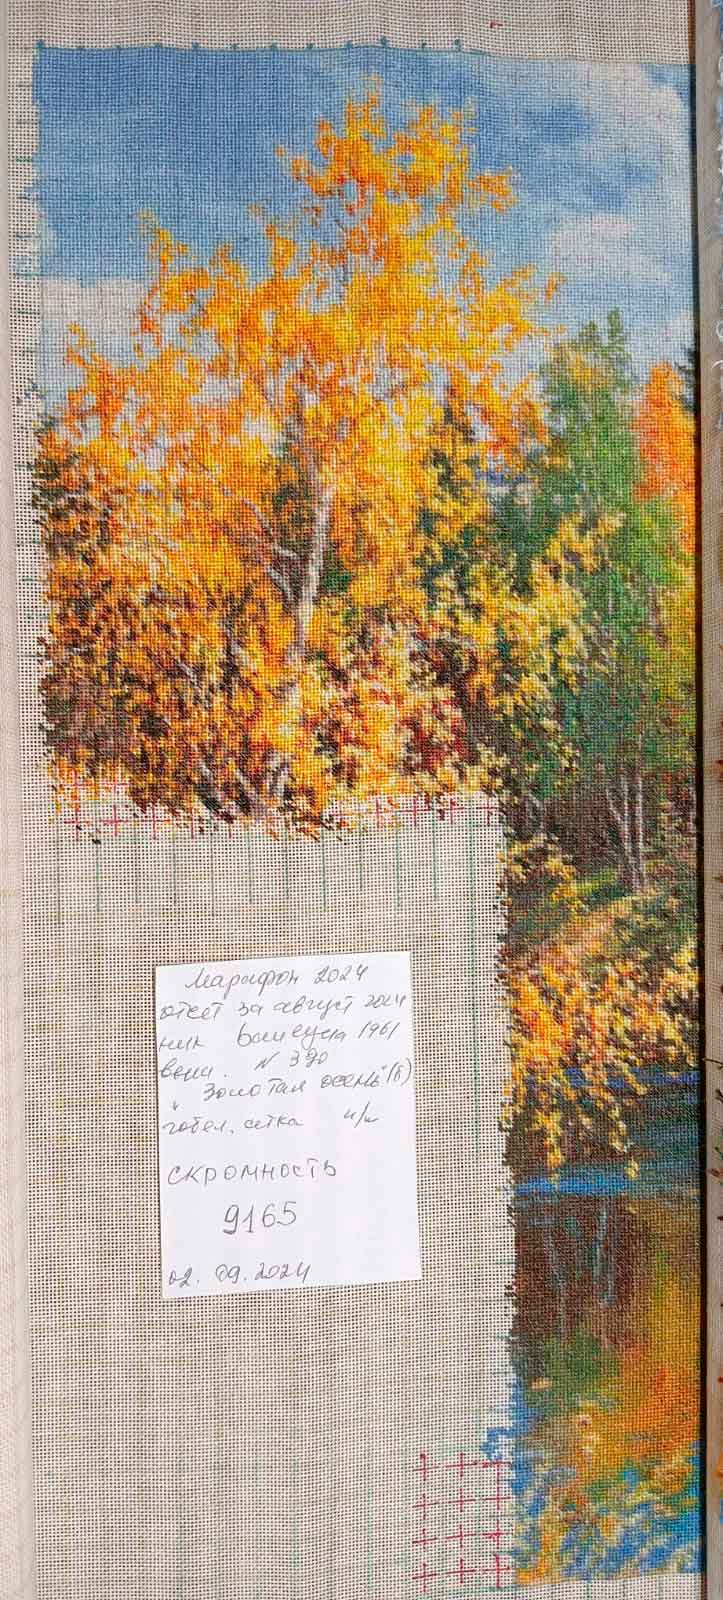 Марафон 2024
отчет за август 2024
ник Валеуча 1961
выш. N 390
"Золотая осень" (б)
гобел. сетка н/ш
СКРОМНОСТЬ
9165
02. 09. 2024